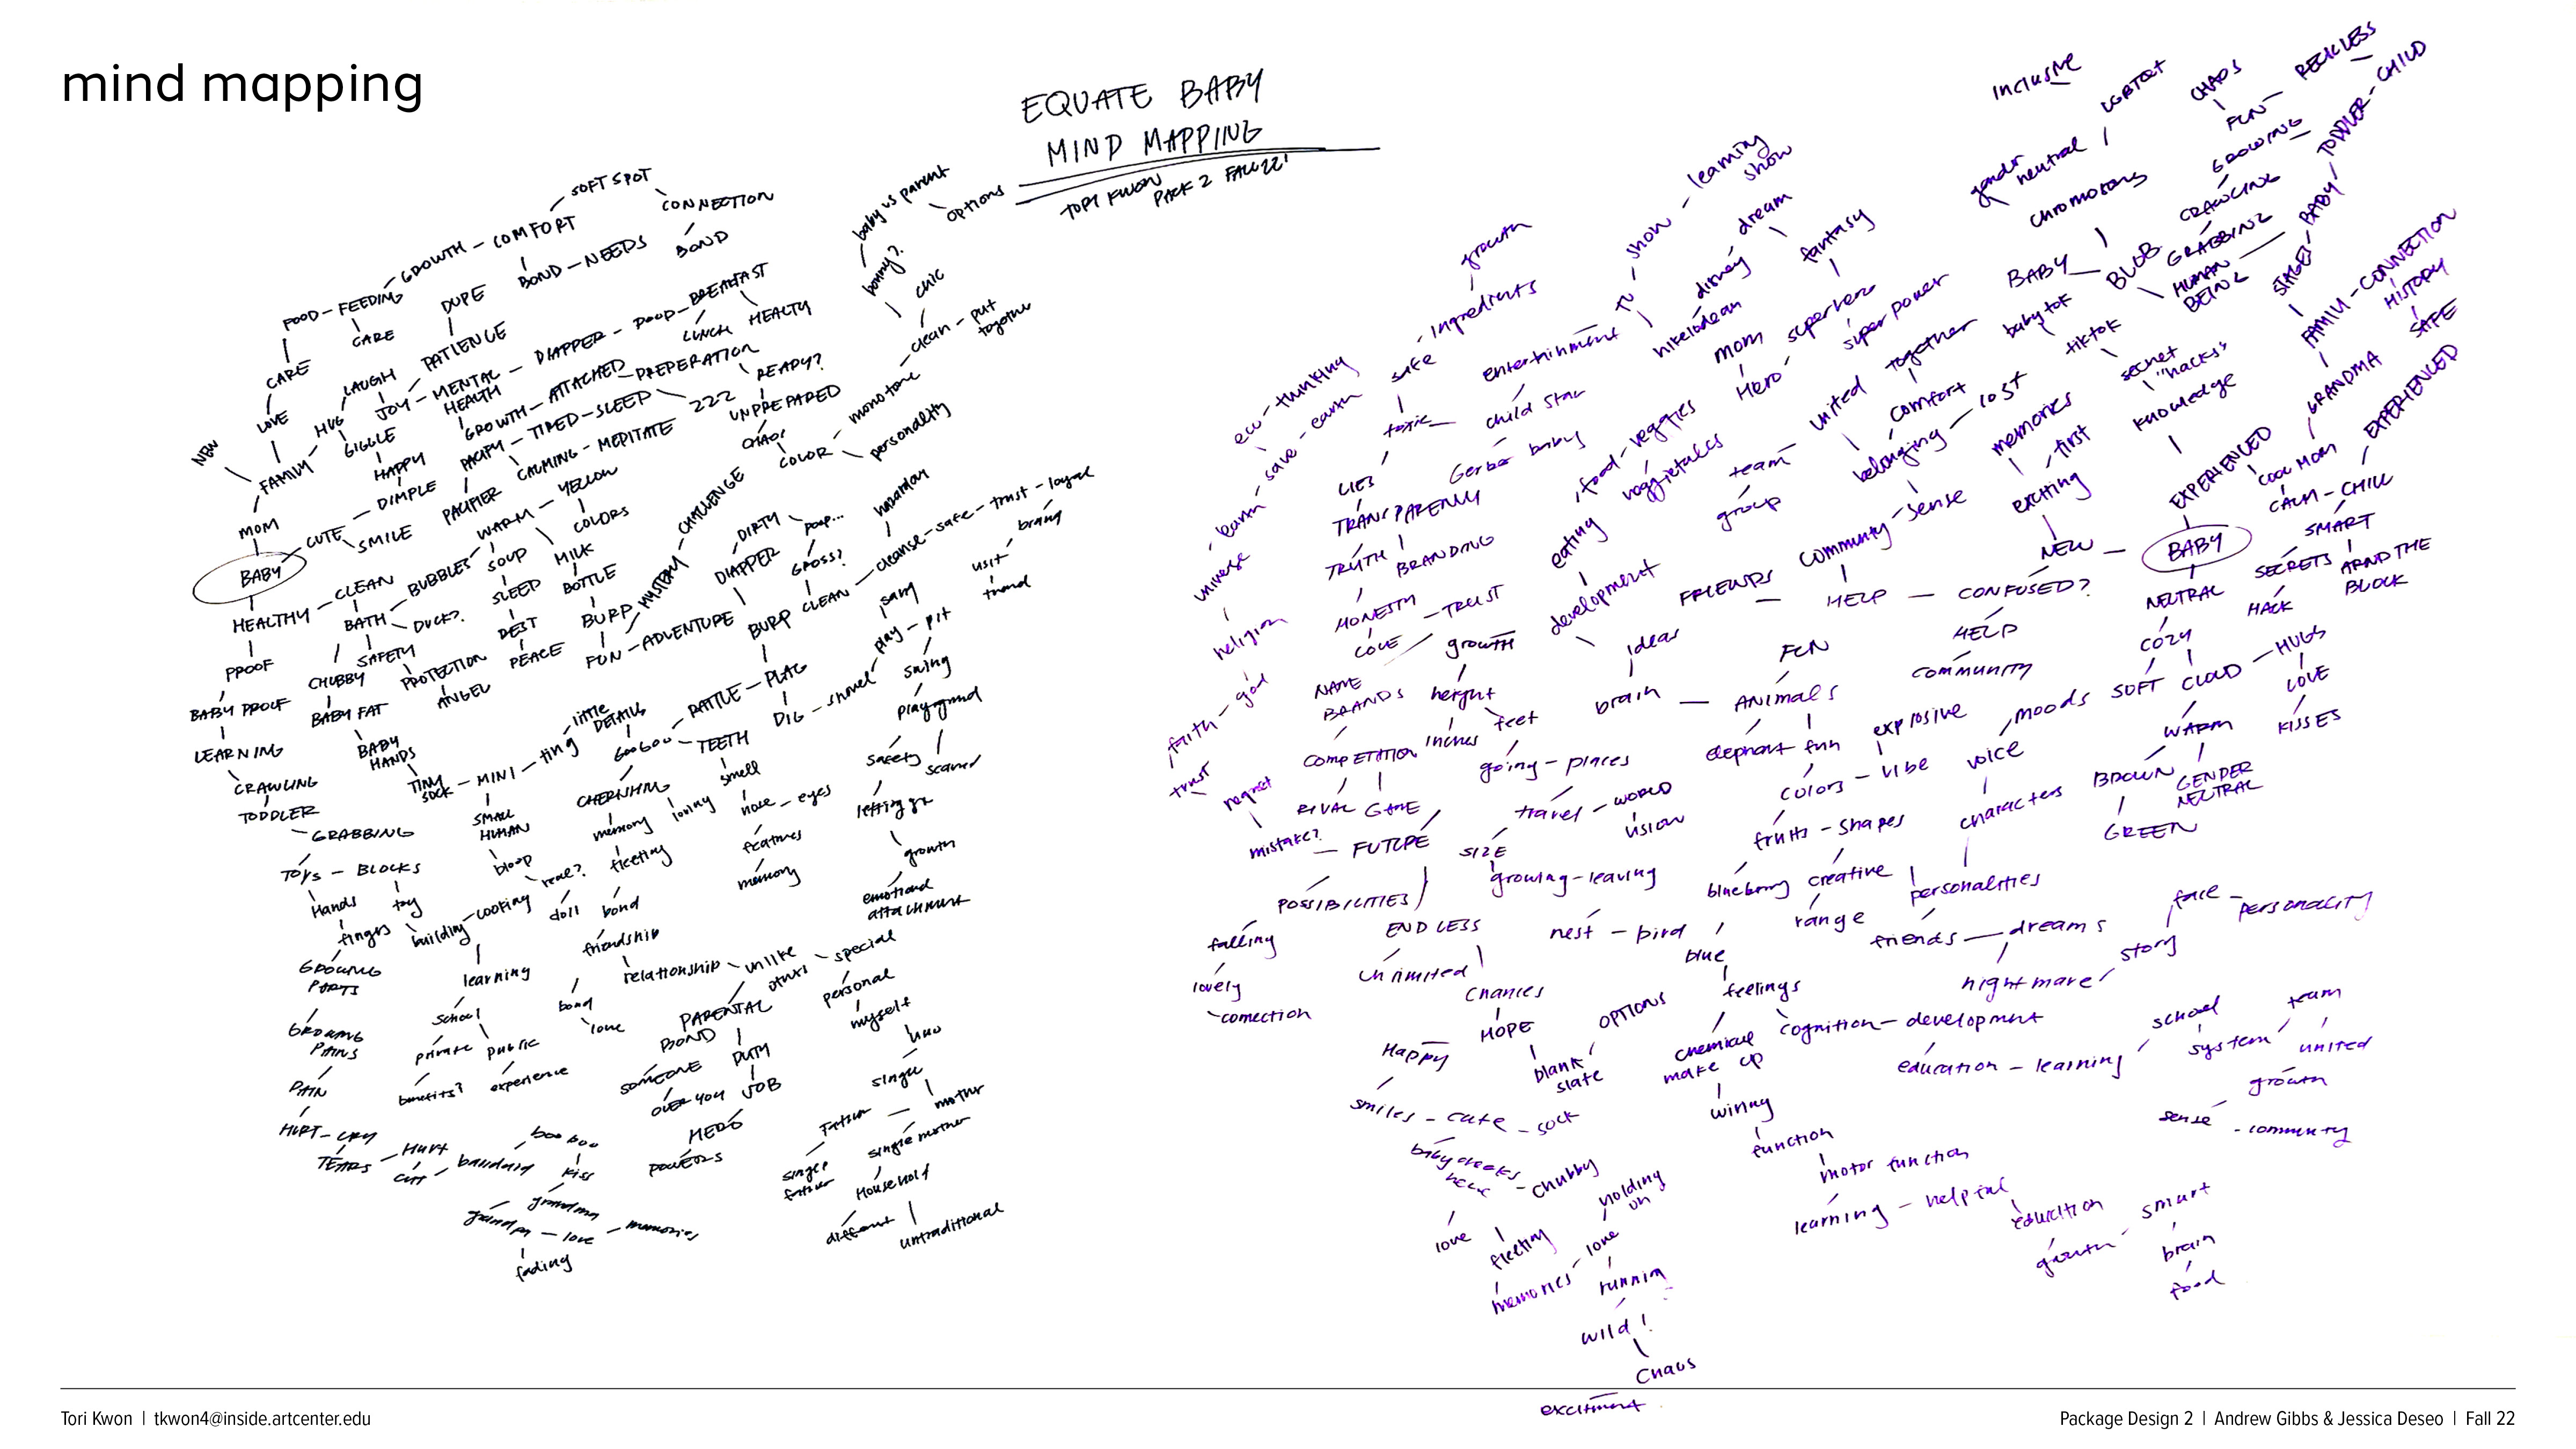 mind mapping
EQUATE BABY
MIND MAPPING
TORI KWON
PACK 2 FALL 22'
SOFT SPOT
CONNECTION
GROWTH - COMFORT
BOND - NEEDS
BOND
FOOD - FEEDING
CARE
DUPE
CARE
LAUGH
PATIENCE
JOY - MENTAL HEALTH - DIAPPER - POOP - BREAKFAST
LUNCH
HEALTHY
GROWTH - ATTACHED - PREPERATION
READY?
UNPREPARED
CHAOS
NEW
LOVE
HUG
GIGGLE
HAPPY
DIMPLE
FAMILY
PACIFY - TIRED - SLEEP
ZZZ
CALMING - MEDITATE
PACIFIER
MOM
CUTE
SMILE
WARM - YELLOW
COLORS
BABY
CLEAN
BUBBLES
SOUP
MILK
SLEEP
BOTTLE
HEALTHY
BATH
DUCK?
REST
BURP
PEACE
PROOF
CHUBBY
SAFETY
PROTECTION
ANGEL
BABY PROOF
BABY FAT
LEARNING
BABY HANDS
CRAWLING
TINY SOCK - MINI - tiny
little
DETAILS
TODDLER
GRABBING
SMALL HUMAN
TOYS - BLOCKS
bloop
real?
Hands
toy
building
cooking
doll
fingers
GROWING PARTS
learning
GROWING PAINS
school
private
public
PAIN
benefits?
experience
HURT - CRY
TEARS
HURT
CUT
bandaid
boo boo
kiss
grandma
grandpa - love - memories
fading
baby vs parent
options
bommy?
chic
clean - put together
monotone
COLOR
personality
MYSTERY
CHALLENGE
FUN - ADVENTURE
DIAPPER
DIRTY
poop...
GROSS?
BURP
CLEAN
cleanse - safe - trust - loyal
brand
visit
trend
GOO GOO
RATTLE - PLAG
TEETH
DIG - shovel
play - pit
swing
playground
safety
scared
letting go
growth
emotional attachment
smell
nose - eyes
features
memory
CHERISHING
memory
loving
fleeting
bond
friendship
relationship
unlike others
special
bond
love
personal
myself
PARENTAL
BOND
DUTY
SOMEONE
OVER YOU
JOB
HERO
POWERS
single
mother
Father
single mother
single father
Household
different
untraditional
eco - thinking
save - earth
learn
universe
religion
god
faith
trust
regret
mistake?
FUTURE
growth
ingredients
safe
toxic
LIES
TRANSPARENCY
TRUTH
BRANDING
HONESTY
TRUST
LOVE
growth
NAME BRANDS
height
inches
feet
COMPETITION
RIVAL
GAME
going - places
travel - WORLD
vision
SIZE
growing - leaving
POSSIBILITIES
ENDLESS
unlimited
chances
HOPE
blank slate
OPTIONS
falling
lovely
connection
nest - bird
Happy
smiles - cute - sock
baby cheeks
chubby
holding on
love
fleeting
memories
love
running
wild!
chaos
excitment
entertainment
TV
show - learning show
child star
Gerber baby
disney
dream
nikelodean
fantasy
mom
superhero
Hero
super power
food - veggies
veggietales
eating
development
team
group
united
together
comfort
belonging
lost
FRIENDS
community
sense
HELP
CONFUSED?
NEW
HELP
community
ideas
brain
ANIMALS
FUN
elephant
fun
explosive
colors - vibe
moods
voice
fruits - shapes
characters
blueberry
creative
personalities
range
blue
friends - dreams
nightmare
story
face - PERSONALITY
feelings
chemical make up
cognition - development
education - learning
school
system
team
united
growth
sense
community
wiring
function
motor function
learning - helpful
education
growth
smart
brain
food
inclusive
LGBTQ+
gender neutral
chromosomes
CHAOS
FUN
RECKLESS
GROWING
CRAWLING
GRABBING
BABY
BLOB
HUMAN BEING
STAGES - BABY - TODDLER - CHILD
babytok
tiktok
secret "hacks"
knowledge
memories
first
exciting
FAMILY - CONNECTION
HISTORY
SAFE
GRANDMA
EXPERIENCED
COOL MOM
EXPERIENCED
CALM - CHILL
SMART
SECRETS
AROND THE BLOCK
HACK
BABY
NEUTRAL
COZY
SOFT
CLOUD
HUGS
LOVE
KISSES
WARM
BROWN
GENDER NEUTRAL
GREEN
Tori Kwon | tkwon4@inside.artcenter.edu
Package Design 2 | Andrew Gibbs & Jessica Deseo | Fall 22